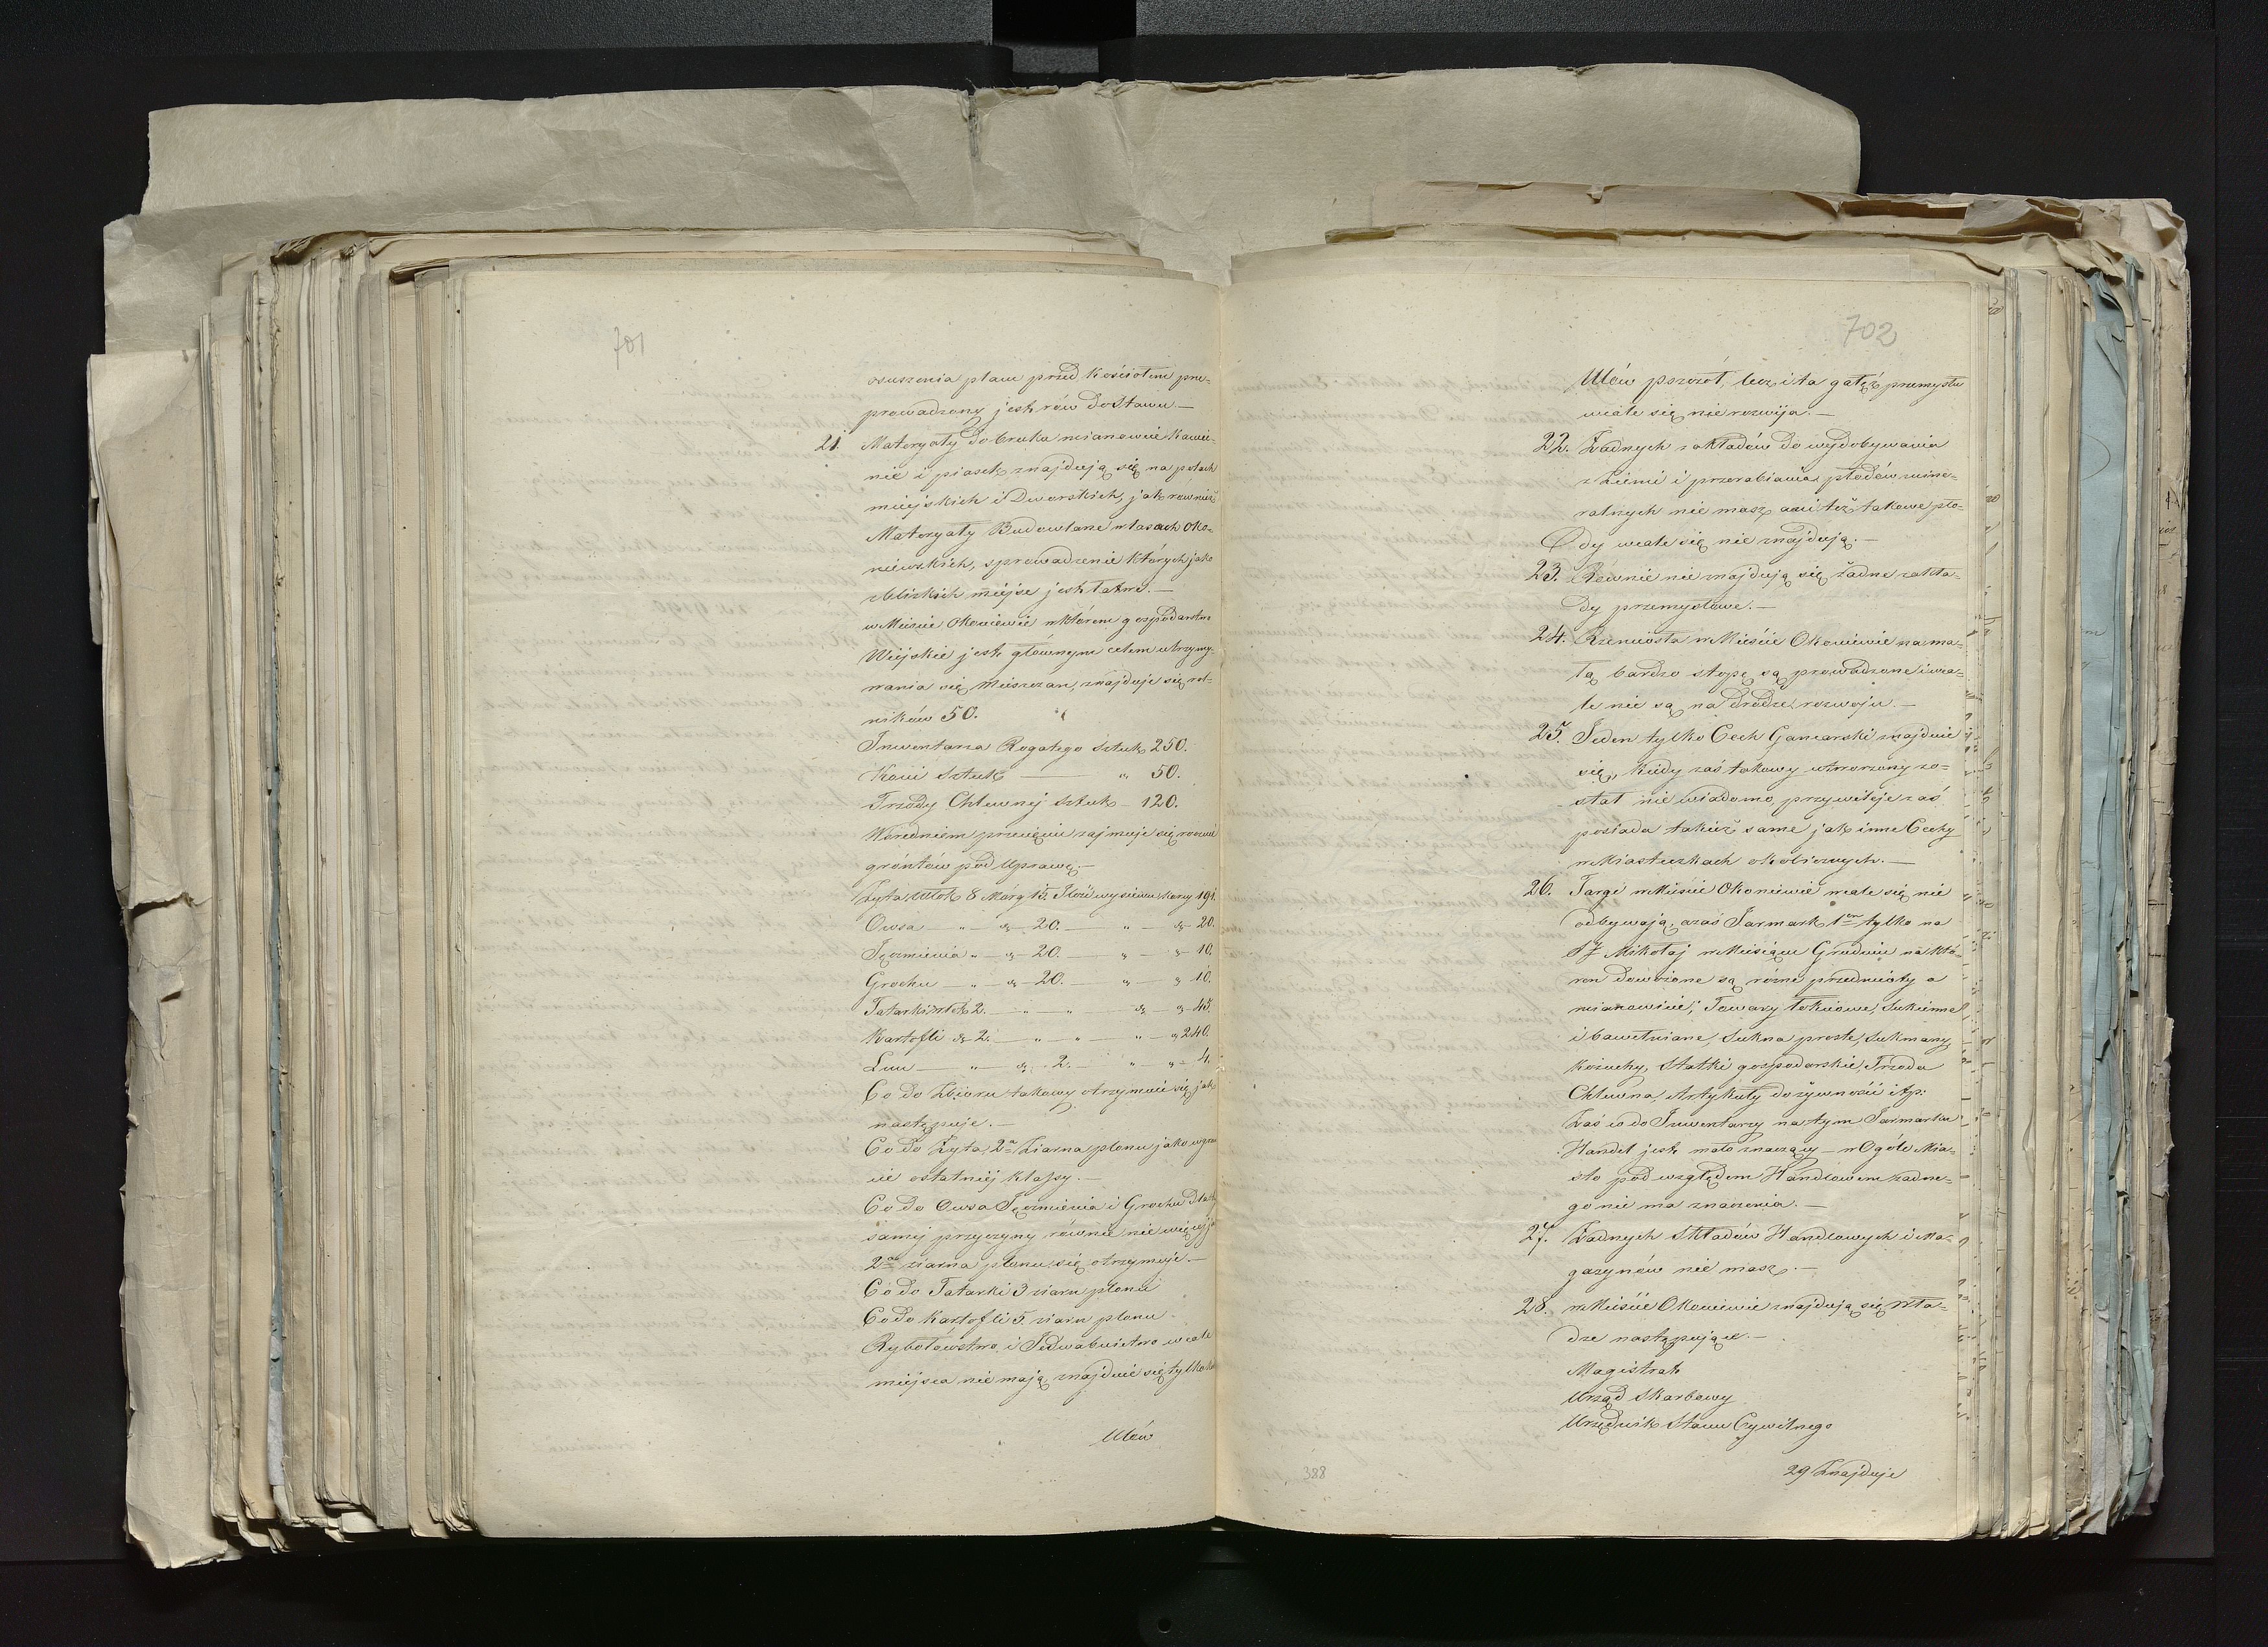 701
osuszenia placu przed Kościołem prze-
prowadzony jest rów do Stawu. —
21. Materyały do bruku mianowicie Kamie-
nie i piasek znajdują się na polach
miejskich i Dworskich, jak również
Materyały Budowlane w lasach Oko-
niewskich, sprowadzenie których jako
z blizkich miejsc jest łatwe. —
w Mieście Okuniewie w którem gospodarstwo
Wiejskie jest głównym celem utrzymy-
wania się Mieszczan, znajduje się rol-
ników 50.
Inwentarza Rogatego Sztuk 250.
Koni Sztuk — „ 50.
Trzody Chlewnej Sztuk — 120.
W średniem przecięciu zajmuje się rocznie
gróntów pod Uprawę. —
Żyta włók 8 Mórg 15. Ilość wysiewu korcy 191.
Owsa — „ — „ 20. — „ — „ 20.
Jęczmienia „ — „ 20. — „ — „ 10.
Grochu — „ — „ 20. — „ — „ 10.
Tatarki włók 2. — „ — „ — „ 45.
Kartofli „ 2. — „ — „ — „ 240.
Lnu — „ — „ 2. „ — „ 4.
Co do Zbioru takowy otrzymuie się jak
następuje. —
Co do Żyta, 2a Ziarna plonu jako w grun
cie ostatniéj klassy. —
Co do Owsa Jęczmienia i Grochu dla téj
saméj przyczyny równie nie więcéj ja
2a ziarna plonu się otrzymuje. —
Co do Tatarki 3 ziarn plonu
Co do Kartofli 5. ziarn plonu
Rybołówstwo i Jedwabnictwo wcale
miejsca nie mają, znajduie się tylko
Ulów
702
Ulów pszczół, lecz i ta gałęź przemysłu
wcale się nie rozwija. —
22. Żadnych zakładów do wydobywania
z Ziemi i przerabiania płodów mine-
ralnych nie masz ani też takowe pło-
dy wcale się nie znajdują. —
23. Równie nie znajdują się żadne zakła-
dy przemysłowe. —
24. Rzemiosła w Mieście Okuniewie na ma-
łą bardzo stopę są prowadzone i wca-
le nie są na drodze rozwoju. —
25. Jeden tylko Cech Garncarski znajduie
się, kiedy zaś takowy utworzony zo-
stał nie wiadomo, przywileje zaś
posiada takież same jak inne Cechy
w Miasteczkach okolicznych. —
26. Targi w Mieście Okoniewie wcale się nie
odbywają, a zaś Jarmark 1en tylko na
Sty Mikołaj w Miesiącu Grudniu na któ-
ren dowożone są różne przedmioty a
mianowicie; Towary łokciowe, Sukienne
i bawełniane, Sukna proste, Sukmany,
Kożuchy, Statki gospodarskie, Trzoda
Chlewna, Artykuły do żywności itp:
Zaś co do Inwentarzy na tym Jarmarku
Handel jest mało znaczący — w Ogóle Mia-
sto pod względem Handlowem żadne-
go nie ma znaczenia. —
27. Żadnych Składów Handlowych i Ma-
gazynów nie masz. —
28. w Mieście Okuniewie znajdują się Wła-
dze następujące. —
Magistrat
Urząd Skarbowy
Urzędnik Stanu Cywilnego
29 Znajduje
388